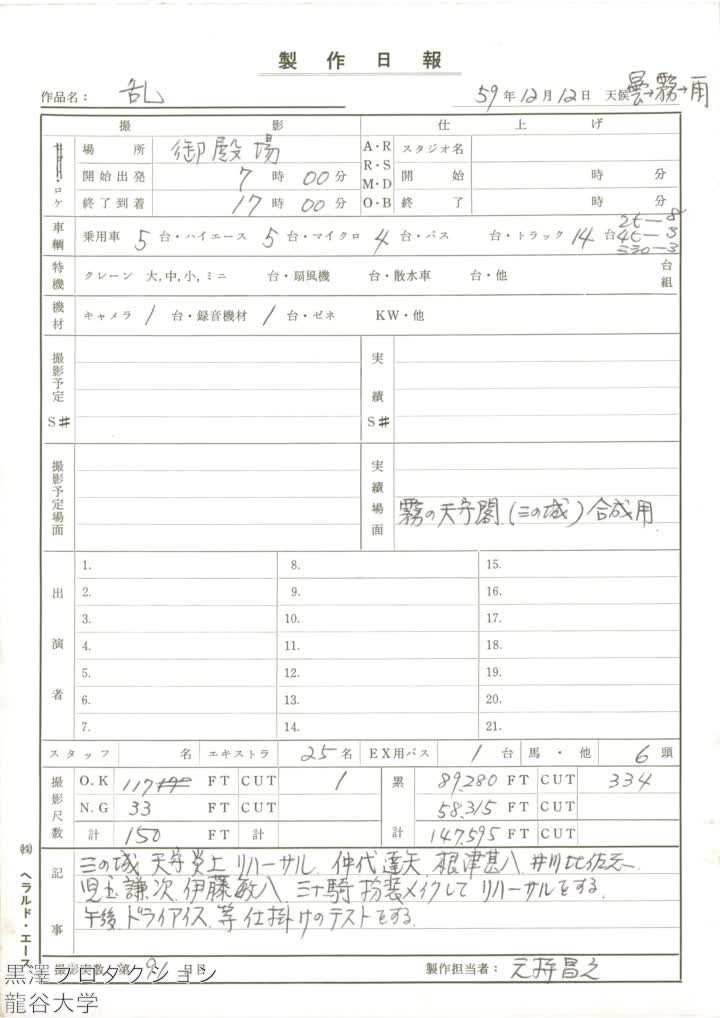 製作日報
作品名： 乱 59年12月12日 天候 曇→霧→雨
撮影 仕上げ
ロケ 場所 御殿場 A・R R・S M・D O・B スタジオ名
開始出発 7時00分 開始 時 分
終了到着 17時00分 終了 時 分
車輌 乗用車 5台・ハイエース 5台・マイクロ 4台・バス 台・トラック 14台 2t—8 4t—3 ミニ30—3
特機 クレーン 大,中,小,ミニ 台・扇風機 台・散水車 台・他 台組
機材 キャメラ 1台・録音機材 1台・ゼネ KW・他
撮影予定 S# 実績 S#
撮影予定場面 実績場面 霧の天守閣(三の城)合成用
出演者
1. 8. 15.
2. 9. 16.
3. 10. 17.
4. 11. 18.
5. 12. 19.
6. 13. 20.
7. 14. 21.
スタッフ 名 エキストラ 25名 EX用バス 1台 馬・他 6頭
撮影尺数 O.K 117 FT CUT 1 累計 89,280 FT CUT 334
N.G 33 FT CUT 58,315 FT CUT
計 150 FT 計 147,595 FT CUT
記事 三の城 天守炎上 リハーサル. 仲代達矢. 根津甚八. 井川比佐志.
児玉謙次. 伊藤敏八. 三十騎 扮装メイクして リハーサルをする.
午後. ドライアイス. 等 仕掛けのテストをする.
撮影実数 第 日目 製作担当者： 元持昌之
㈱ヘラルド・エース
黒澤プロダクション
龍谷大学